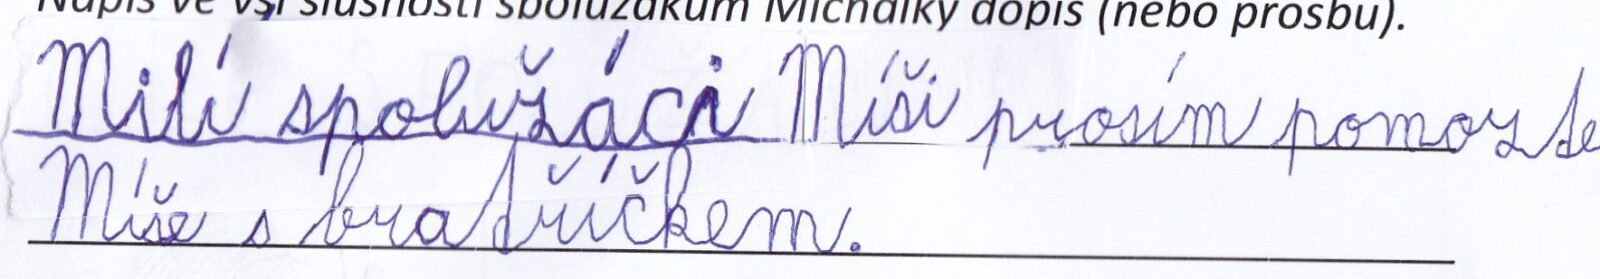 Napiš ve vší slušnosti spolužákům Michalky dopis (nebo prosbu).
Milí spolužáci Míši prosím pomozte
Míše s bratříčkem.